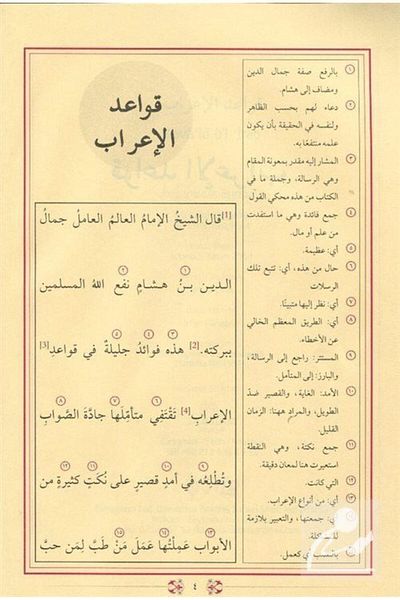 قواعد
الإعراب
[1]قال الشيخُ الإمامُ العالمُ العاملُ جمالُ
الدين بنُ هشامٍ نفع اللهُ المسلمين
ببركته.[2] هذه فوائدُ جليلةٌ في قواعدِ[3]
الإعرابِ[4] تَقْتَفِي متأمِّلَها جادَّةَ الصَّوابِ
وتُطْلِعُه في أمدٍ قصيرٍ على نُكَتٍ كثيرةٍ من
الأبوابِ عَمِلْتُها عَمَلَ مَنْ طَبَّ لِمَن حبَّ
١ بالرفع صفة جمال الدين
ومضاف إلى هشام.
٢ دعاء لهم بحسب الظاهر
ولنفسه في الحقيقة بأن يكون
علمه منتفعًا به.
٣ المشار إليه مقدر بمعونة المقام
وهي الرسالة، وجملة ما في
الكتاب من هذه محكي القول
٤ جمع فائدة وهي ما استفدت
من علم أو مال.
٥ أي: عظيمة.
٦ حال من هذه، أي: تتبع تلك
الرسالات
٧ أي: نظر إليها متبينًا.
٨ أي: الطريق المعظم الخالي
عن الأخطاء.
٩ المستتر: راجع إلى الرسالة،
والبارز: إلى المتأمل.
١٠ الأمد: الغاية، والقصير ضدّ
الطويل، والمراد ههنا: الزمان
القليل.
١١ جمع نكتة، وهي النقطة
استعيرت هنا لمعان دقيقة.
١٢ التي كانت.
١٣ أي: من أنواع الإعراب.
أي: جمعتها، والتعبير بلازمة
كعمل.
٤